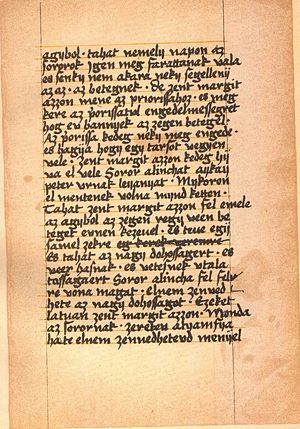 agybol · tahat nemely napon az
sororok Igen meg farattanak vala
es senky nem akara neky segelleny
az az · az betegnek · De zent margit
azzon mene az priorissahoz · es meg
kere az priorissatol engedelmessegret
hog ev bannyek az zegen beteggel ·
Az priorissa kedeg neky meg engede ·
es hagya hogy egy tarsot vegyen
vele · Zent margit azzon kedeg hy
va el vele Soror alinchat aykay
peter vrnak leanyat · Mykoron
el mentenek volna mynd ketten ·
Tahat zent margit azzon fel emele
az agybol az zegen regy veen be
teget evnen kezeuel · es teue egy
samel zekre eg
es tahat az nagy dohossagert · es
veer hasnak · es vetesnek vtala
tossagaert Soror alincha fel fely
re vona magat · el nem zenved
hete az nagy dohossagot · Ezeket
latuan zent margit azzon · Monda
az sorornak · zereteu atyamfya
hate el nem zenuedheted mennyel